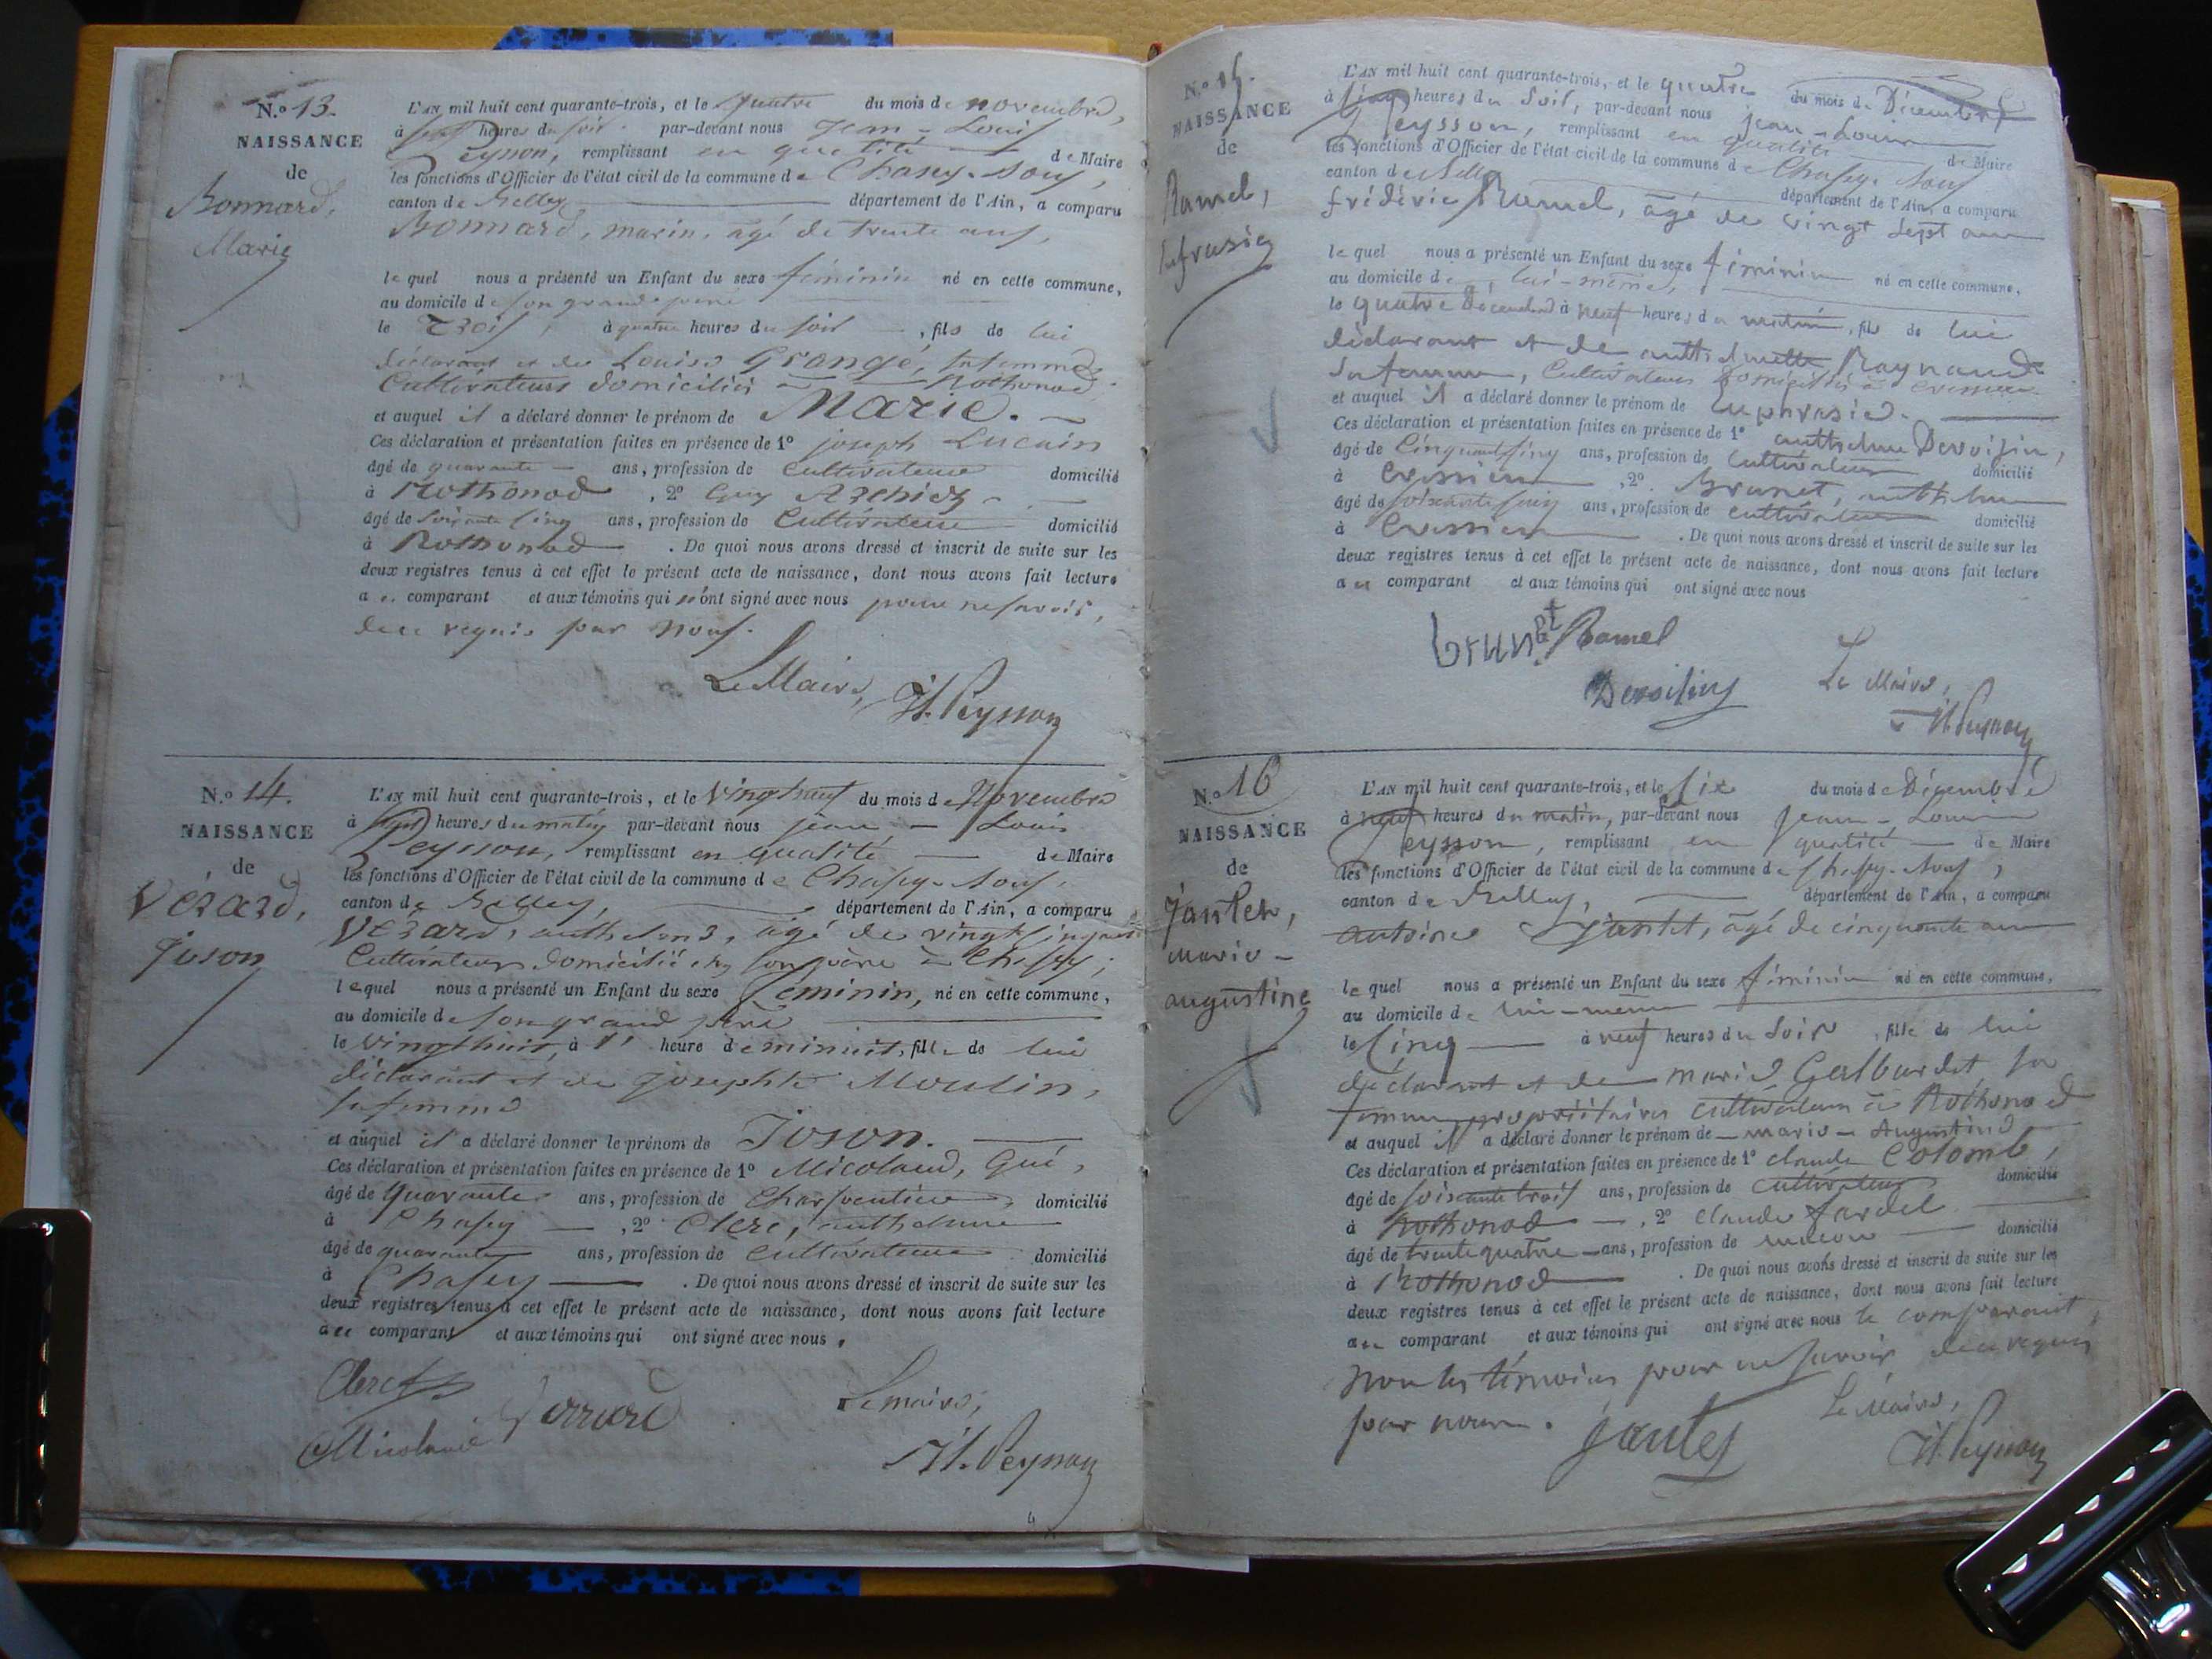 N.o 13.
NAISSANCE
de
Bonnard,
Marie
L'AN mil huit cent quarante-trois, et le quatre du mois de novembre,
à sept heures du soir par-devant nous Jean-Louis
Peysson, remplissant en qualité de Maire
les fonctions d'Officier de l'état civil de la commune de Chasey-Sous,
canton de Belley, département de l'Ain, a comparu
Bonnard, marin, âgé de trente ans,
lequel nous a présenté un Enfant du sexe féminin né en cette commune,
au domicile de son grand père
le Trois, à quatre heures du soir, fils de lui
déclarant et de Louise Grangé, sa femme
Cultivateurs domiciliés à Rothonod
et auquel il a déclaré donner le prénom de Marie.
Ces déclaration et présentation faites en présence de 1º joseph Lucain
âgé de quarante ans, profession de Cultivateur domicilié
à Rothonod, 2º Guy
âgé de soixante cinq ans, profession de Cultivateur domicilié
à Rothonod. De quoi nous avons dressé et inscrit de suite sur les
deux registres tenus à cet effet le présent acte de naissance, dont nous avons fait lecture
au comparant et aux témoins qui n'ont signé avec nous pour ne savoir,
de ce requis par nous.
Le Maire, JL. Peysson
N.o 14.
NAISSANCE
de
Vérard,
Joson
L'AN mil huit cent quarante-trois, et le vingt neuf du mois de Novembre
à sept heures du matin par-devant nous jean-Louis
Peysson, remplissant en qualité de Maire
les fonctions d'Officier de l'état civil de la commune de Chasey-Sous,
canton de Belley, département de l'Ain, a comparu
Vérard, anthelme, âgé de vingt cinq ans
Cultivateur domicilié chez son père à Chasey;
lequel nous a présenté un Enfant du sexe féminin, né en cette commune,
au domicile de son grand père
le vingt huit, à 1' heure de minuit, fille de lui
déclarant et de Josephte Moulin,
sa femme
et auquel il a déclaré donner le prénom de Joson.
Ces déclaration et présentation faites en présence de 1º Micolaud, Gui,
âgé de quarante ans, profession de Charpentier, domicilié
à Chasey, 2º Clerc, anthelme
âgé de quarante ans, profession de Cultivateur domicilié
à Chasey. De quoi nous avons dressé et inscrit de suite sur les
deux registres tenus à cet effet le présent acte de naissance, dont nous avons fait lecture
au comparant et aux témoins qui ont signé avec nous.
Clerc
Micolaud Verrard Le maire,
JL. Peysson
N.o 15.
NAISSANCE
de
Ramel,
Eufrasie
L'AN mil huit cent quarante-trois, et le quatre du mois de Décembre
à cinq heures du soir, par-devant nous jean-Louis
Peysson, remplissant en qualité de Maire
les fonctions d'Officier de l'état civil de la commune de Chasey-Sous
canton de Belley département de l'Ain, a comparu
frédéric Ramel, âgé de vingt sept ans
lequel nous a présenté un Enfant du sexe féminin né en cette commune,
au domicile de lui-même,
le quatre Décembre à neuf heures du matin, fils de lui
déclarant et de anthelmette Raynaud
sa femme, Cultivateurs domiciliés à Cressieu
et auquel il a déclaré donner le prénom de Euphrasie.
Ces déclaration et présentation faites en présence de 1º anthelme Devoisin,
âgé de Cinquante cinq ans, profession de Cultivateur domicilié
à Cressieu, 2º Brunet, anthelme
âgé de soixante cinq ans, profession de cultivateur domicilié
à Cressieu. De quoi nous avons dressé et inscrit de suite sur les
deux registres tenus à cet effet le présent acte de naissance, dont nous avons fait lecture
au comparant et aux témoins qui ont signé avec nous
brunet Ramel
Le Maire,
JL. Peysson
N.o 16
NAISSANCE
de
Jantet,
marie-
augustine
L'AN mil huit cent quarante-trois, et le Six du mois de Décembre
à neuf heures du matin, par-devant nous jean-Louis
Peysson, remplissant en qualité de Maire
les fonctions d'Officier de l'état civil de la commune de Chasey-Sous,
canton de Belley, département de l'Ain, a comparu
antoine Jantet, âgé de cinquante ans
lequel nous a présenté un Enfant du sexe féminin né en cette commune,
au domicile de lui-même
le Cinq à neuf heures du soir, fille de lui
déclarant et de marie Galbardet, sa
femme propriétaires cultivateurs à Rothonod
et auquel il a déclaré donner le prénom de marie-Augustine
Ces déclaration et présentation faites en présence de 1º claude Colomb,
âgé de soixante trois ans, profession de cultivateur domicilié
à Rothonod, 2º claude fardel
âgé de trente quatre ans, profession de macon domicilié
à Rothonod. De quoi nous avons dressé et inscrit de suite sur les
deux registres tenus à cet effet le présent acte de naissance, dont nous avons fait lecture
au comparant et aux témoins qui ont signé avec nous le comparant,
non les témoins pour ne savoir de ce requis
par nous. Jantet
Le Maire,
JL. Peysson